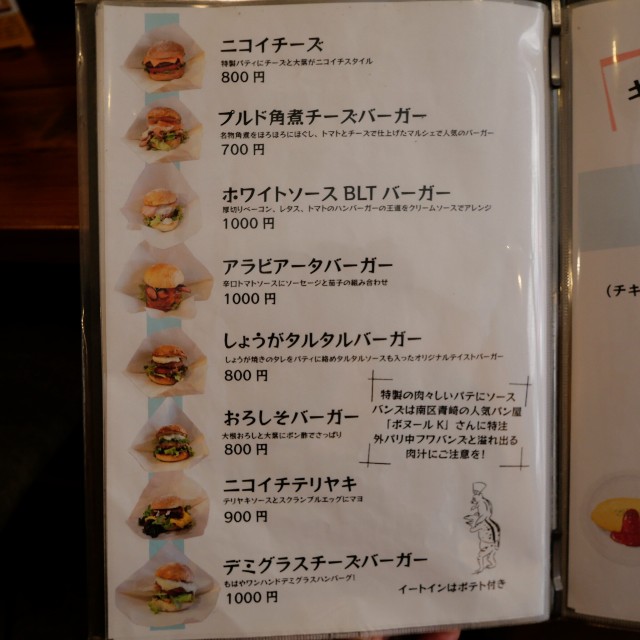 ニコイチーズ
特製パティにチーズと大葉がニコイチスタイル
800 円
プルド角煮チーズバーガー
名物角煮をほろほろにほぐし、トマトとチーズで仕上げたマルシェで人気のバーガー
700 円
ホワイトソース BLT バーガー
厚切りベーコン、レタス、トマトのハンバーガーの王道をクリームソースでアレンジ
1000 円
アラビアータバーガー
辛口トマトソースにソーセージと茄子の組み合わせ
1000 円
しょうがタルタルバーガー
しょうが焼きのタレをパティに絡めタルタルソースも入ったオリジナルテイストバーガー
800 円
おろしそバーガー
大根おろしと大葉にポン酢でさっぱり
800 円
ニコイチテリヤキ
テリヤキソースとスクランブルエッグにマヨ
900 円
デミグラスチーズバーガー
もはやワンハンドデミグラスハンバーグ!
1000 円
特製の肉々しいパテにソース
バンズは南区青崎の人気パン屋
「ボヌール K」さんに特注
外パリ中フワバンズと溢れ出る
肉汁にご注意を!
イートインはポテト付き
(チキ